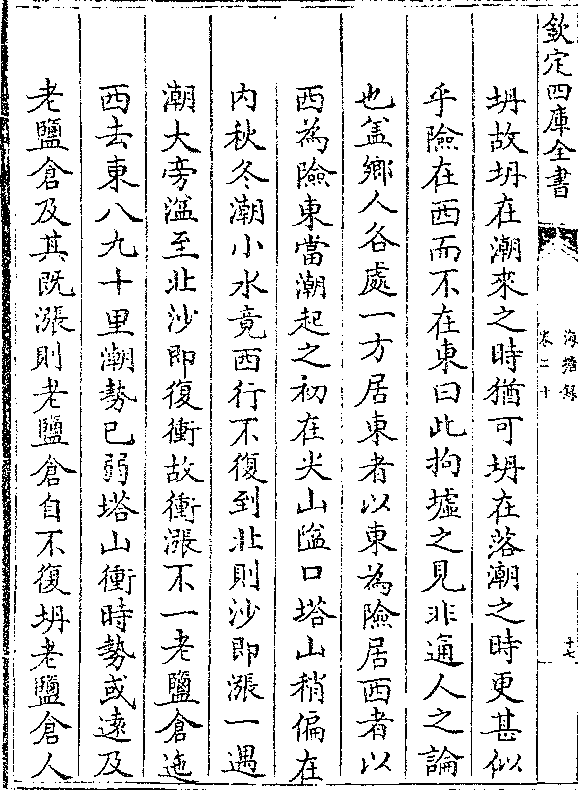 欽定四庫全書
海塘錄
卷二十
十七
坍故坍在潮來之時猶可坍在落潮之時更甚似
乎險在西而不在東曰此拘墟之見非通人之論
也盖鄉人各處一方居東者以東為險居西者以
西為險東當潮起之初在尖山隘口塔山稍偏在
内秋冬潮小水竟西行不復到北則沙即漲一遇
潮大旁溢至北沙即復衝故衝漲不一老鹽倉迤
西去東八九十里潮勢已弱塔山衝時勢或遠及
老鹽倉及其既漲則老鹽倉自不復坍老鹽倉人